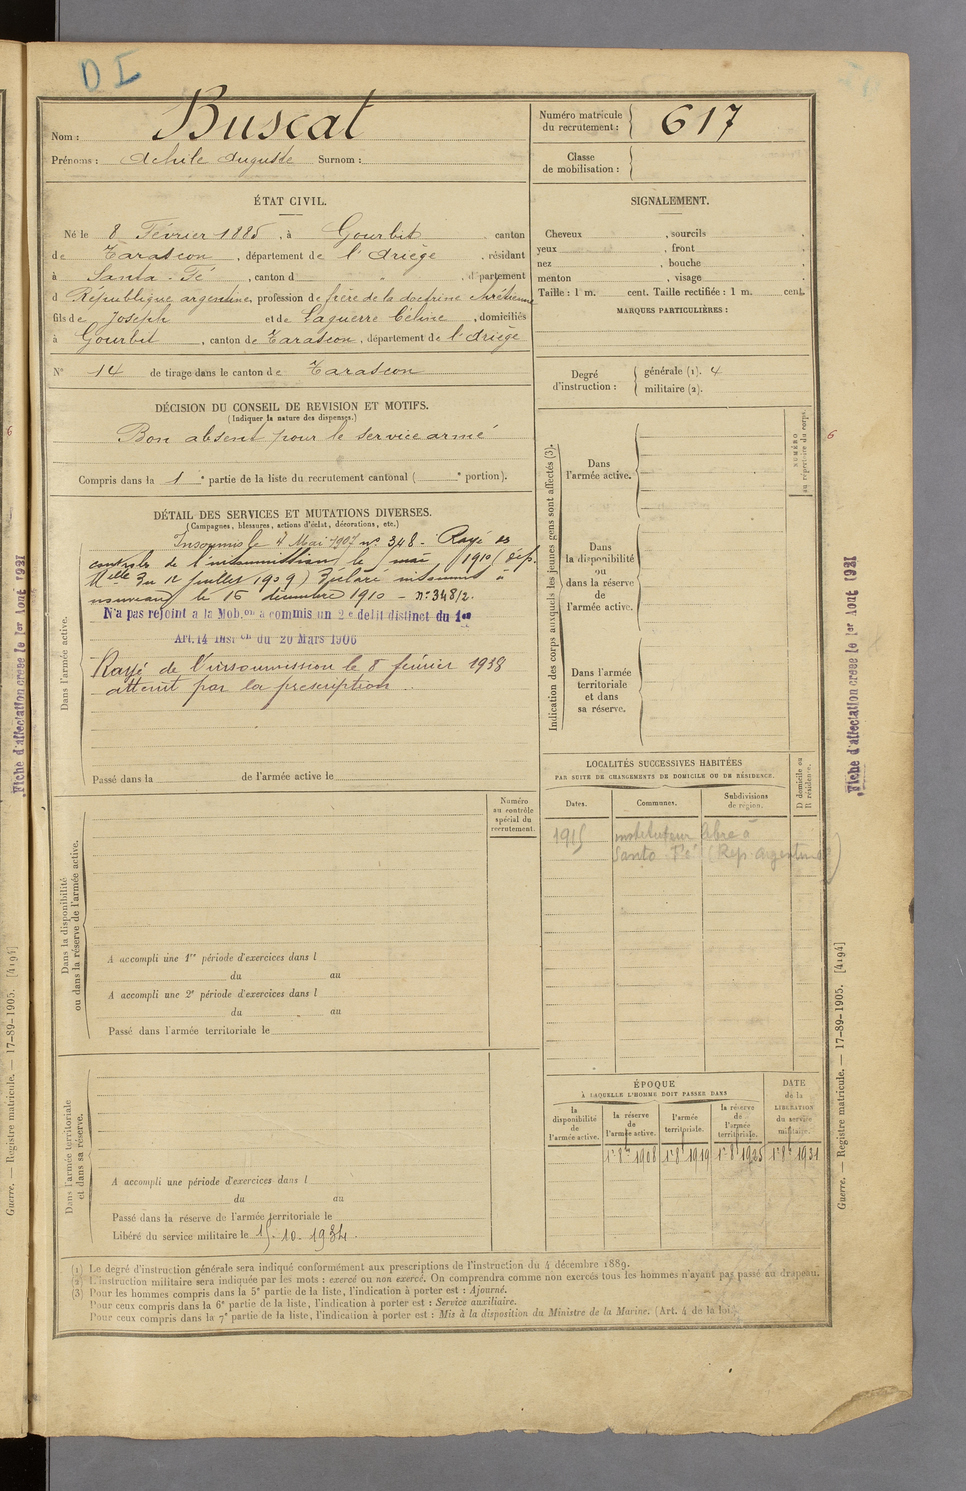 D I
Nom : Buscat
Prénoms : Achile Auguste Surnom :
Numéro matricule du recrutement : 617
Classe de mobilisation :
ÉTAT CIVIL.
Né le 8 Février 1885, à Gourbit canton
de Tarascon, département de l'Ariège, résidant
à Santa-Fé, canton d " , département
d République argentine, profession de frère de la doctrine chrétienne
fils de Joseph et de Laguerre Céline, domiciliés
à Gourbit, canton de Tarascon, département de l'Ariège
N° 14 de tirage dans le canton de Tarascon
SIGNALEMENT.
Cheveux , sourcils .
yeux , front .
nez , bouche .
menton , visage .
Taille : 1 m. cent. Taille rectifiée : 1 m. cent.
MARQUES PARTICULIÈRES :
Degré d'instruction : générale (1). 4
militaire (2).
DÉCISION DU CONSEIL DE REVISION ET MOTIFS.
(Indiquer la nature des dispenses.)
Bon absent pour le service armé
Compris dans la 1 e partie de la liste du recrutement cantonal ( e portion).
DÉTAIL DES SERVICES ET MUTATIONS DIVERSES.
(Campagnes, blessures, actions d'éclat, décorations, etc.)
Dans l'armée active.
Insoumis le 4 Mai 1907 n° 348 - Rayé des
contrôles de l'insoumission le mai 1910 (dép.
Melle du 12 juillet 1909) Déclaré insoumis à
nouveau le 16 décembre 1910 - n° 348/2.
N'a pas rejoint a la Mob.on a commis un 2e delit distinct du 1er
Art.14 Inst on du 20 Mars 1906
Rayé de l'insoumission le 8 février 1938
atteint par la prescription.
Passé dans la de l'armée active le
Indication des corps auxquels les jeunes gens sont affectés (3).
NUMÉRO au répertoire du corps.
6
6
Dans l'armée active.
Dans la disponibilité ou dans la réserve de l'armée active.
Dans l'armée territoriale et dans sa réserve.
LOCALITÉS SUCCESSIVES HABITÉES
PAR SUITE DE CHANGEMENTS DE DOMICILE OU DE RÉSIDENCE.
Dates. Communes. Subdivisions de région. D domicile ou R résidence.
1915 instituteur libre à
Santo Fé (Rep. argentine)
Dans la disponibilité ou dans la réserve de l'armée active.
Numéro au contrôle spécial du recrutement.
A accompli une 1re période d'exercices dans l
du au
A accompli une 2e période d'exercices dans l
du au
Passé dans l'armée territoriale le
Dans l'armée territoriale et dans sa réserve.
A accompli une période d'exercices dans l
du au
Passé dans la réserve de l'armée territoriale le
Libéré du service militaire le 15.10.1934.
ÉPOQUE
À LAQUELLE L'HOMME DOIT PASSER DANS
DATE de la LIBÉRATION du service militaire.
la disponibilité de l'armée active.
la réserve de l'armée active.
l'armée territoriale.
la réserve de l'armée territoriale.
1er 8bre 1908 1er 8bre 1919 1er 8bre 1925 1er 8bre 1931
(1) Le degré d'instruction générale sera indiqué conformément aux prescriptions de l'instruction du 4 décembre 1889.
(2) L'instruction militaire sera indiquée par les mots : exercé ou non exercé. On comprendra comme non exercés tous les hommes n'ayant pas passé au drapeau.
(3) Pour les hommes compris dans la 5e partie de la liste, l'indication à porter est : Ajourné.
Pour ceux compris dans la 6e partie de la liste, l'indication à porter est : Service auxiliaire.
Pour ceux compris dans la 7e partie de la liste, l'indication à porter est : Mis à la disposition du Ministre de la Marine. (Art. 4 de la loi.)
Fiche d'affectation créée le 1er Août 1921
Fiche d'affectation créée le 1er Août 1921
Guerre. — Registre matricule. — 17-89-1905. [4194]
Guerre. — Registre matricule. — 17-89-1905. [4194]